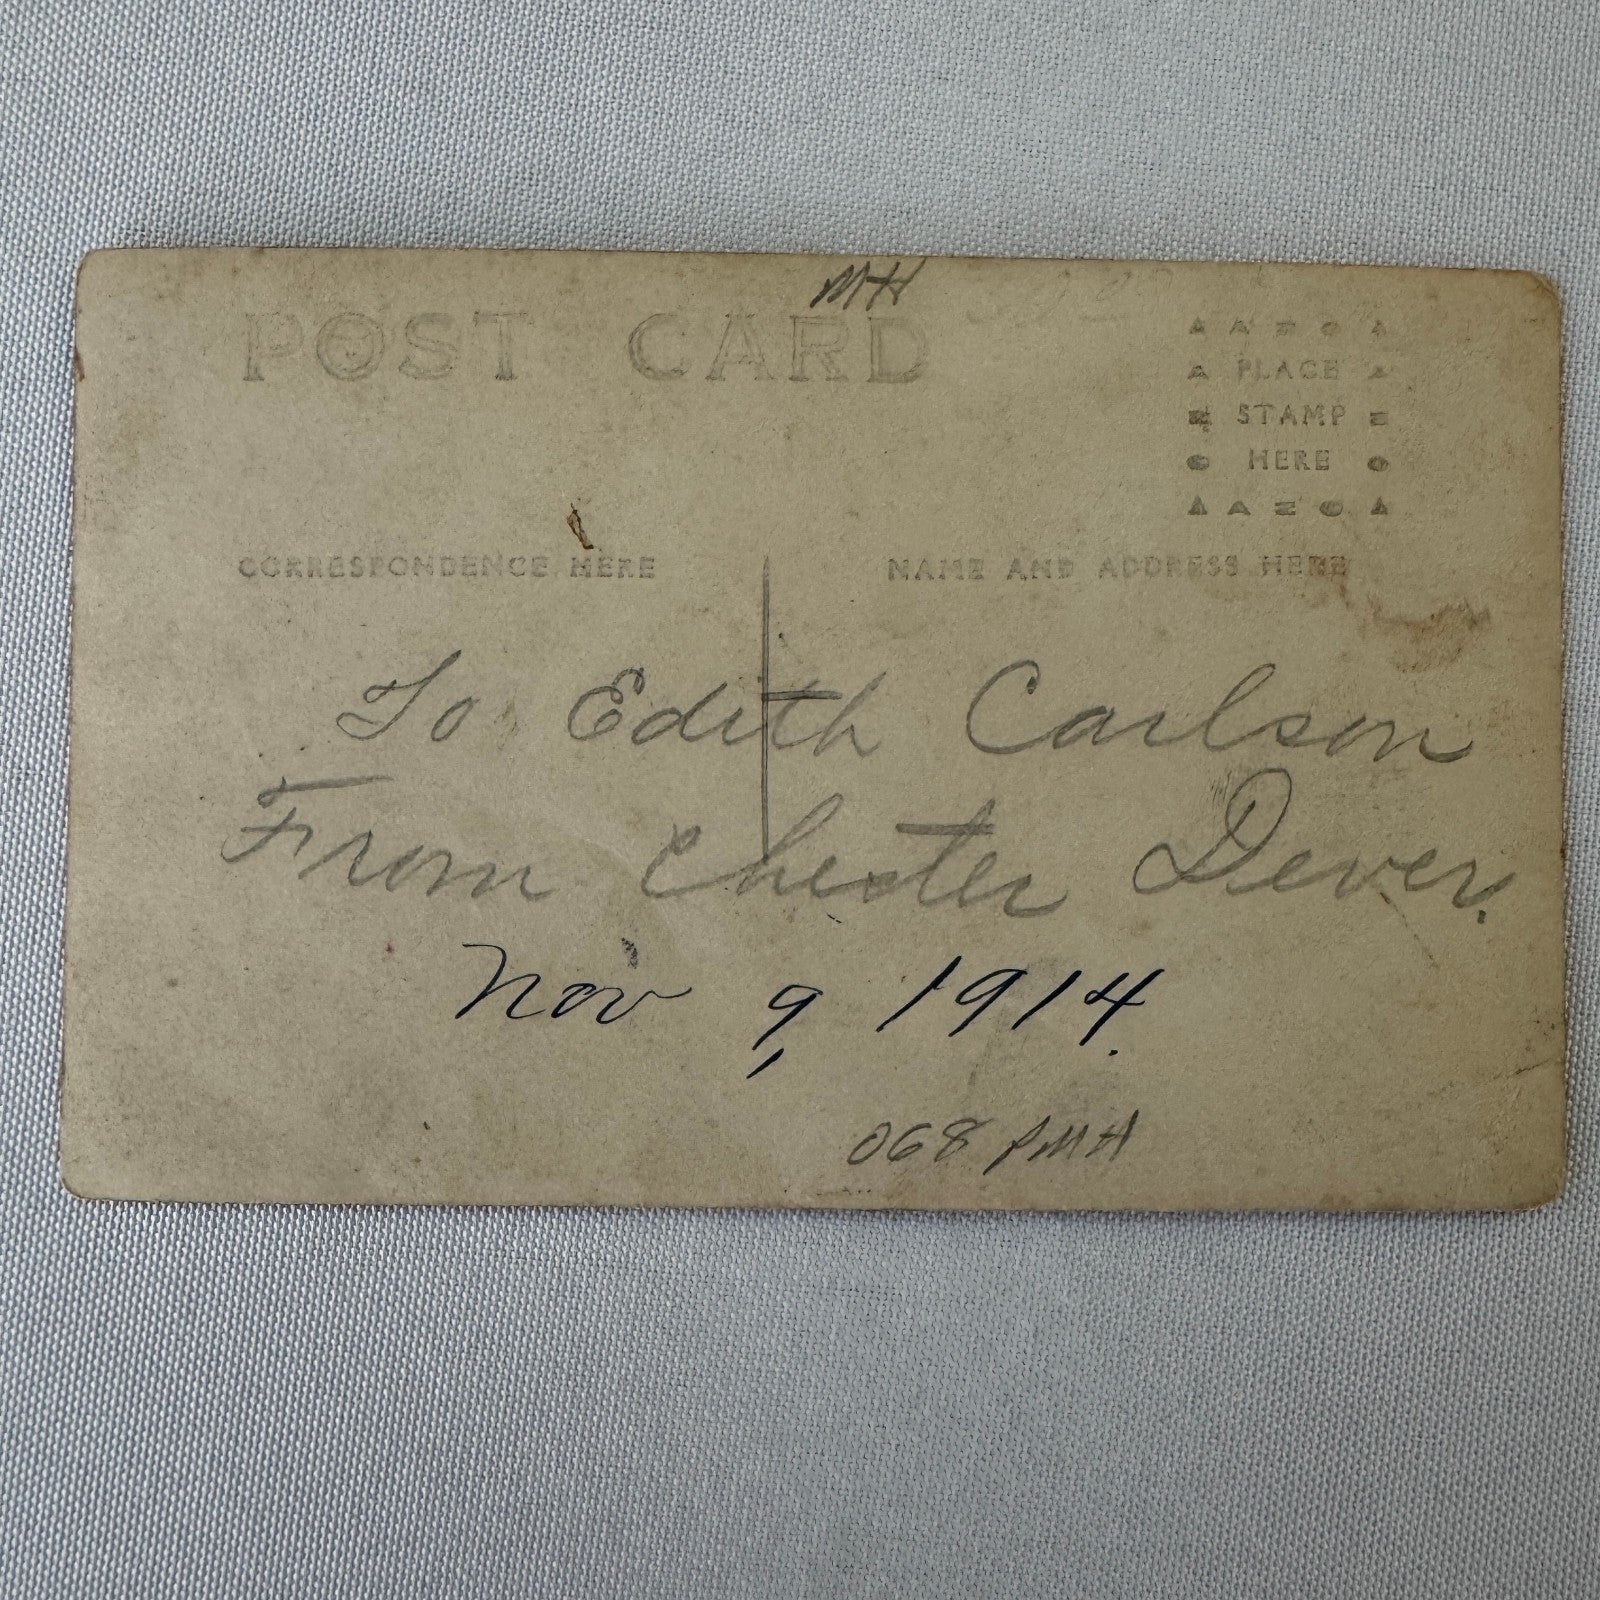 MH
POST CARD
PLACE
STAMP
HERE
CORRESPONDENCE HERE
NAME AND ADDRESS HERE
To Edith Carlson
From Chester Dever.
Nov 9, 1914.
068 PMH